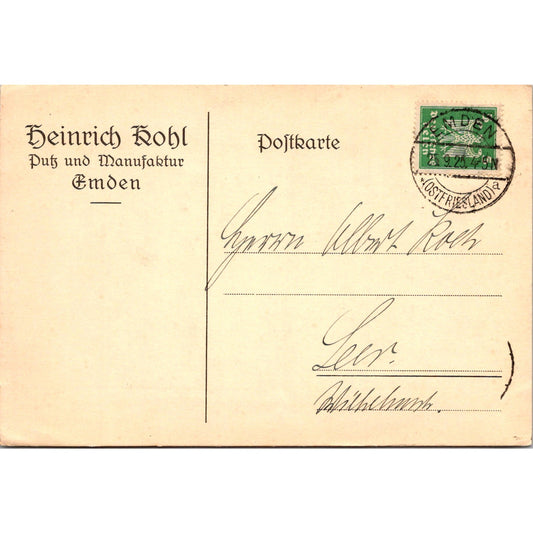 Heinrich Kohl
Putz und Manufaktur
Emden
Postkarte
EMDEN
25.9.25. 4-5N
(OSTFRIESLAND) a
Herrn Albert Koch
Leer.